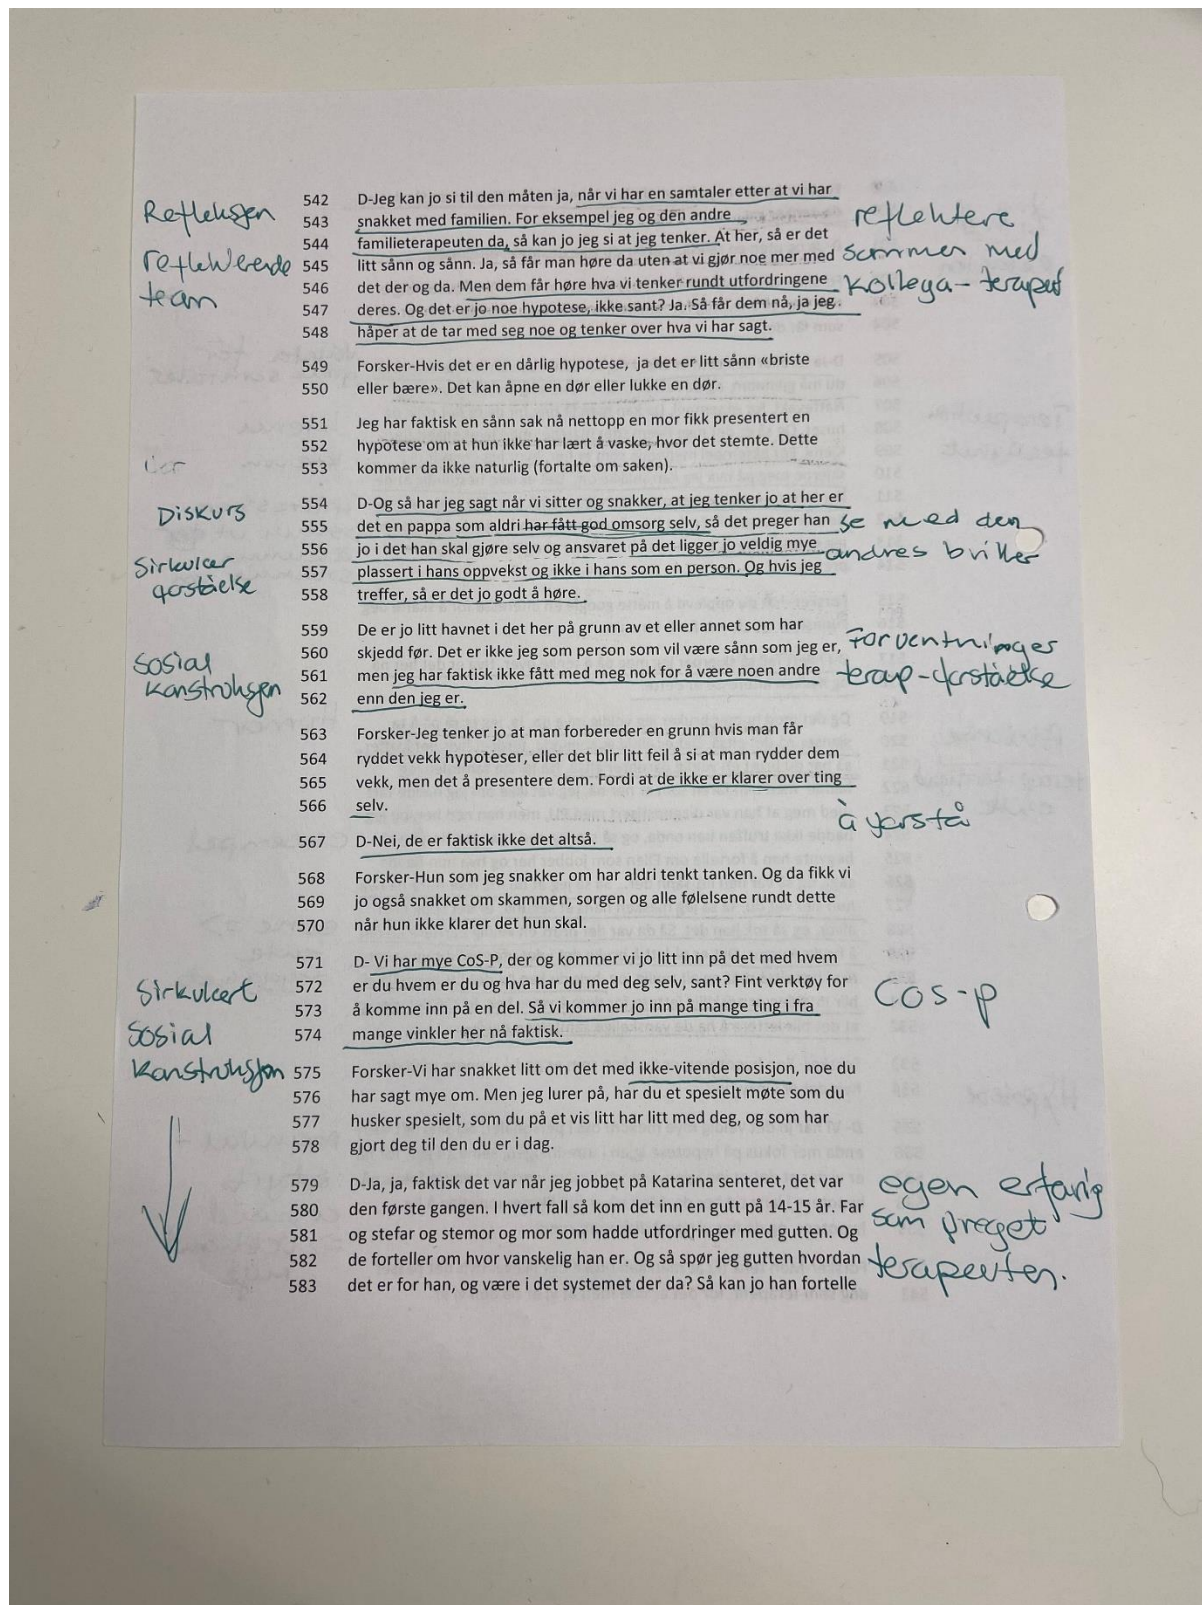 Refleksjon
reflekterende
team
542 D-Jeg kan jo si til den måten ja, når vi har en samtaler etter at vi har
543 snakket med familien. For eksempel jeg og den andre
544 familieterapeuten da, så kan jo jeg si at jeg tenker. At her, så er det
545 litt sånn og sånn. Ja, så får man høre da uten at vi gjør noe mer med
546 det der og da. Men dem får høre hva vi tenker rundt utfordringene
547 deres. Og det er jo noe hypotese, ikke sant? Ja. Så får dem nå, ja jeg
548 håper at de tar med seg noe og tenker over hva vi har sagt.
reflektere
sammen med
kollega-terapeut
549 Forsker-Hvis det er en dårlig hypotese, ja det er litt sånn «briste
550 eller bære». Det kan åpne en dør eller lukke en dør.
551 Jeg har faktisk en sånn sak nå nettopp en mor fikk presentert en
552 hypotese om at hun ikke har lært å vaske, hvor det stemte. Dette
553 kommer da ikke naturlig (fortalte om saken).
Diskurs
Sirkulær
forståelse
554 D-Og så har jeg sagt når vi sitter og snakker, at jeg tenker jo at her er
555 det en pappa som aldri har fått god omsorg selv, så det preger han
556 jo i det han skal gjøre selv og ansvaret på det ligger jo veldig mye
557 plassert i hans oppvekst og ikke i hans som en person. Og hvis jeg
558 treffer, så er det jo godt å høre.
se med den
andres briller
Sosial
konstruksjon
559 De er jo litt havnet i det her på grunn av et eller annet som har
560 skjedd før. Det er ikke jeg som person som vil være sånn som jeg er,
561 men jeg har faktisk ikke fått med meg nok for å være noen andre
562 enn den jeg er.
Forventninger
terap-forståelse
563 Forsker-Jeg tenker jo at man forbereder en grunn hvis man får
564 ryddet vekk hypoteser, eller det blir litt feil å si at man rydder dem
565 vekk, men det å presentere dem. Fordi at de ikke er klarer over ting
566 selv.
å forstå
567 D-Nei, de er faktisk ikke det altså.
568 Forsker-Hun som jeg snakker om har aldri tenkt tanken. Og da fikk vi
569 jo også snakket om skammen, sorgen og alle følelsene rundt dette
570 når hun ikke klarer det hun skal.
Sirkulært
Sosial
konstruksjon
571 D- Vi har mye CoS-P, der og kommer vi jo litt inn på det med hvem
572 er du hvem er du og hva har du med deg selv, sant? Fint verktøy for
573 å komme inn på en del. Så vi kommer jo inn på mange ting i fra
574 mange vinkler her nå faktisk.
COS-P
575 Forsker-Vi har snakket litt om det med ikke-vitende posisjon, noe du
576 har sagt mye om. Men jeg lurer på, har du et spesielt møte som du
577 husker spesielt, som du på et vis litt har litt med deg, og som har
578 gjort deg til den du er i dag.
579 D-Ja, ja, faktisk det var når jeg jobbet på Katarina senteret, det var
580 den første gangen. I hvert fall så kom det inn en gutt på 14-15 år. Far
581 og stefar og stemor og mor som hadde utfordringer med gutten. Og
582 de forteller om hvor vanskelig han er. Og så spør jeg gutten hvordan
583 det er for han, og være i det systemet der da? Så kan jo han fortelle
egen erfarig
som preget
terapeuten.